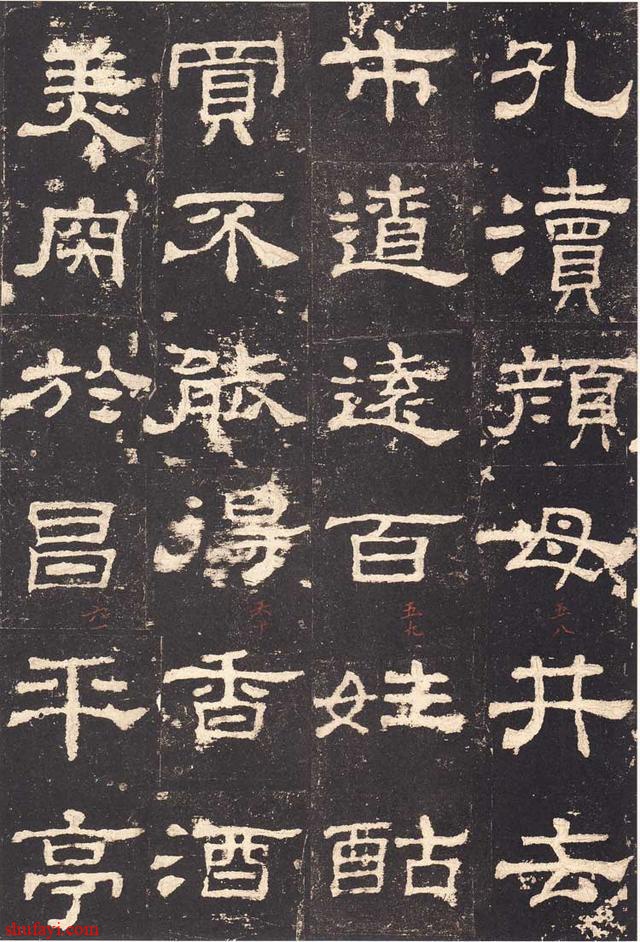 孔瀆顏母井去
市遼遠百姓酤
買不能得香酒
美肉於昌平亭
五八
五九
六十
六一
shufayi.com